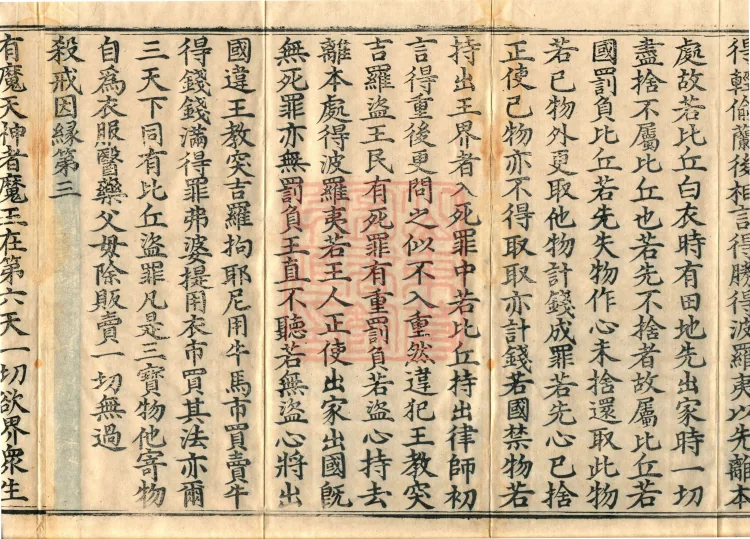 得輕偷蘭後相言得勝得波羅夷以先離本
處故若比丘白衣時有田地先出家時一切
盡捨不屬比丘也若先不捨者故屬比丘若
國罰負比丘若先失物作心未捨還取此物
若已物外更取他物計錢成罪若先心已捨
正使己物亦不得取取亦計錢若國禁物若
持出王界者入死罪中若比丘持出律師初
言得重後更問之似不入重然違犯王教突
吉羅盜王民有死罪有重罰負若盜心持去
離本處得波羅夷若王人正使出家出國既
無死罪亦無罰負王直不聽若無盜心將出
國違王教突吉羅拘耶尼用牛馬市買賣牛
得錢錢滿得罪弗婆提用衣市買其法亦爾
三天下同有比丘盜罪凡是三寶物他寄物
自為衣服醫藥父母除販賣一切無過
殺戒因緣第三
有魔天神者魔王在第六天一切欲界眾生